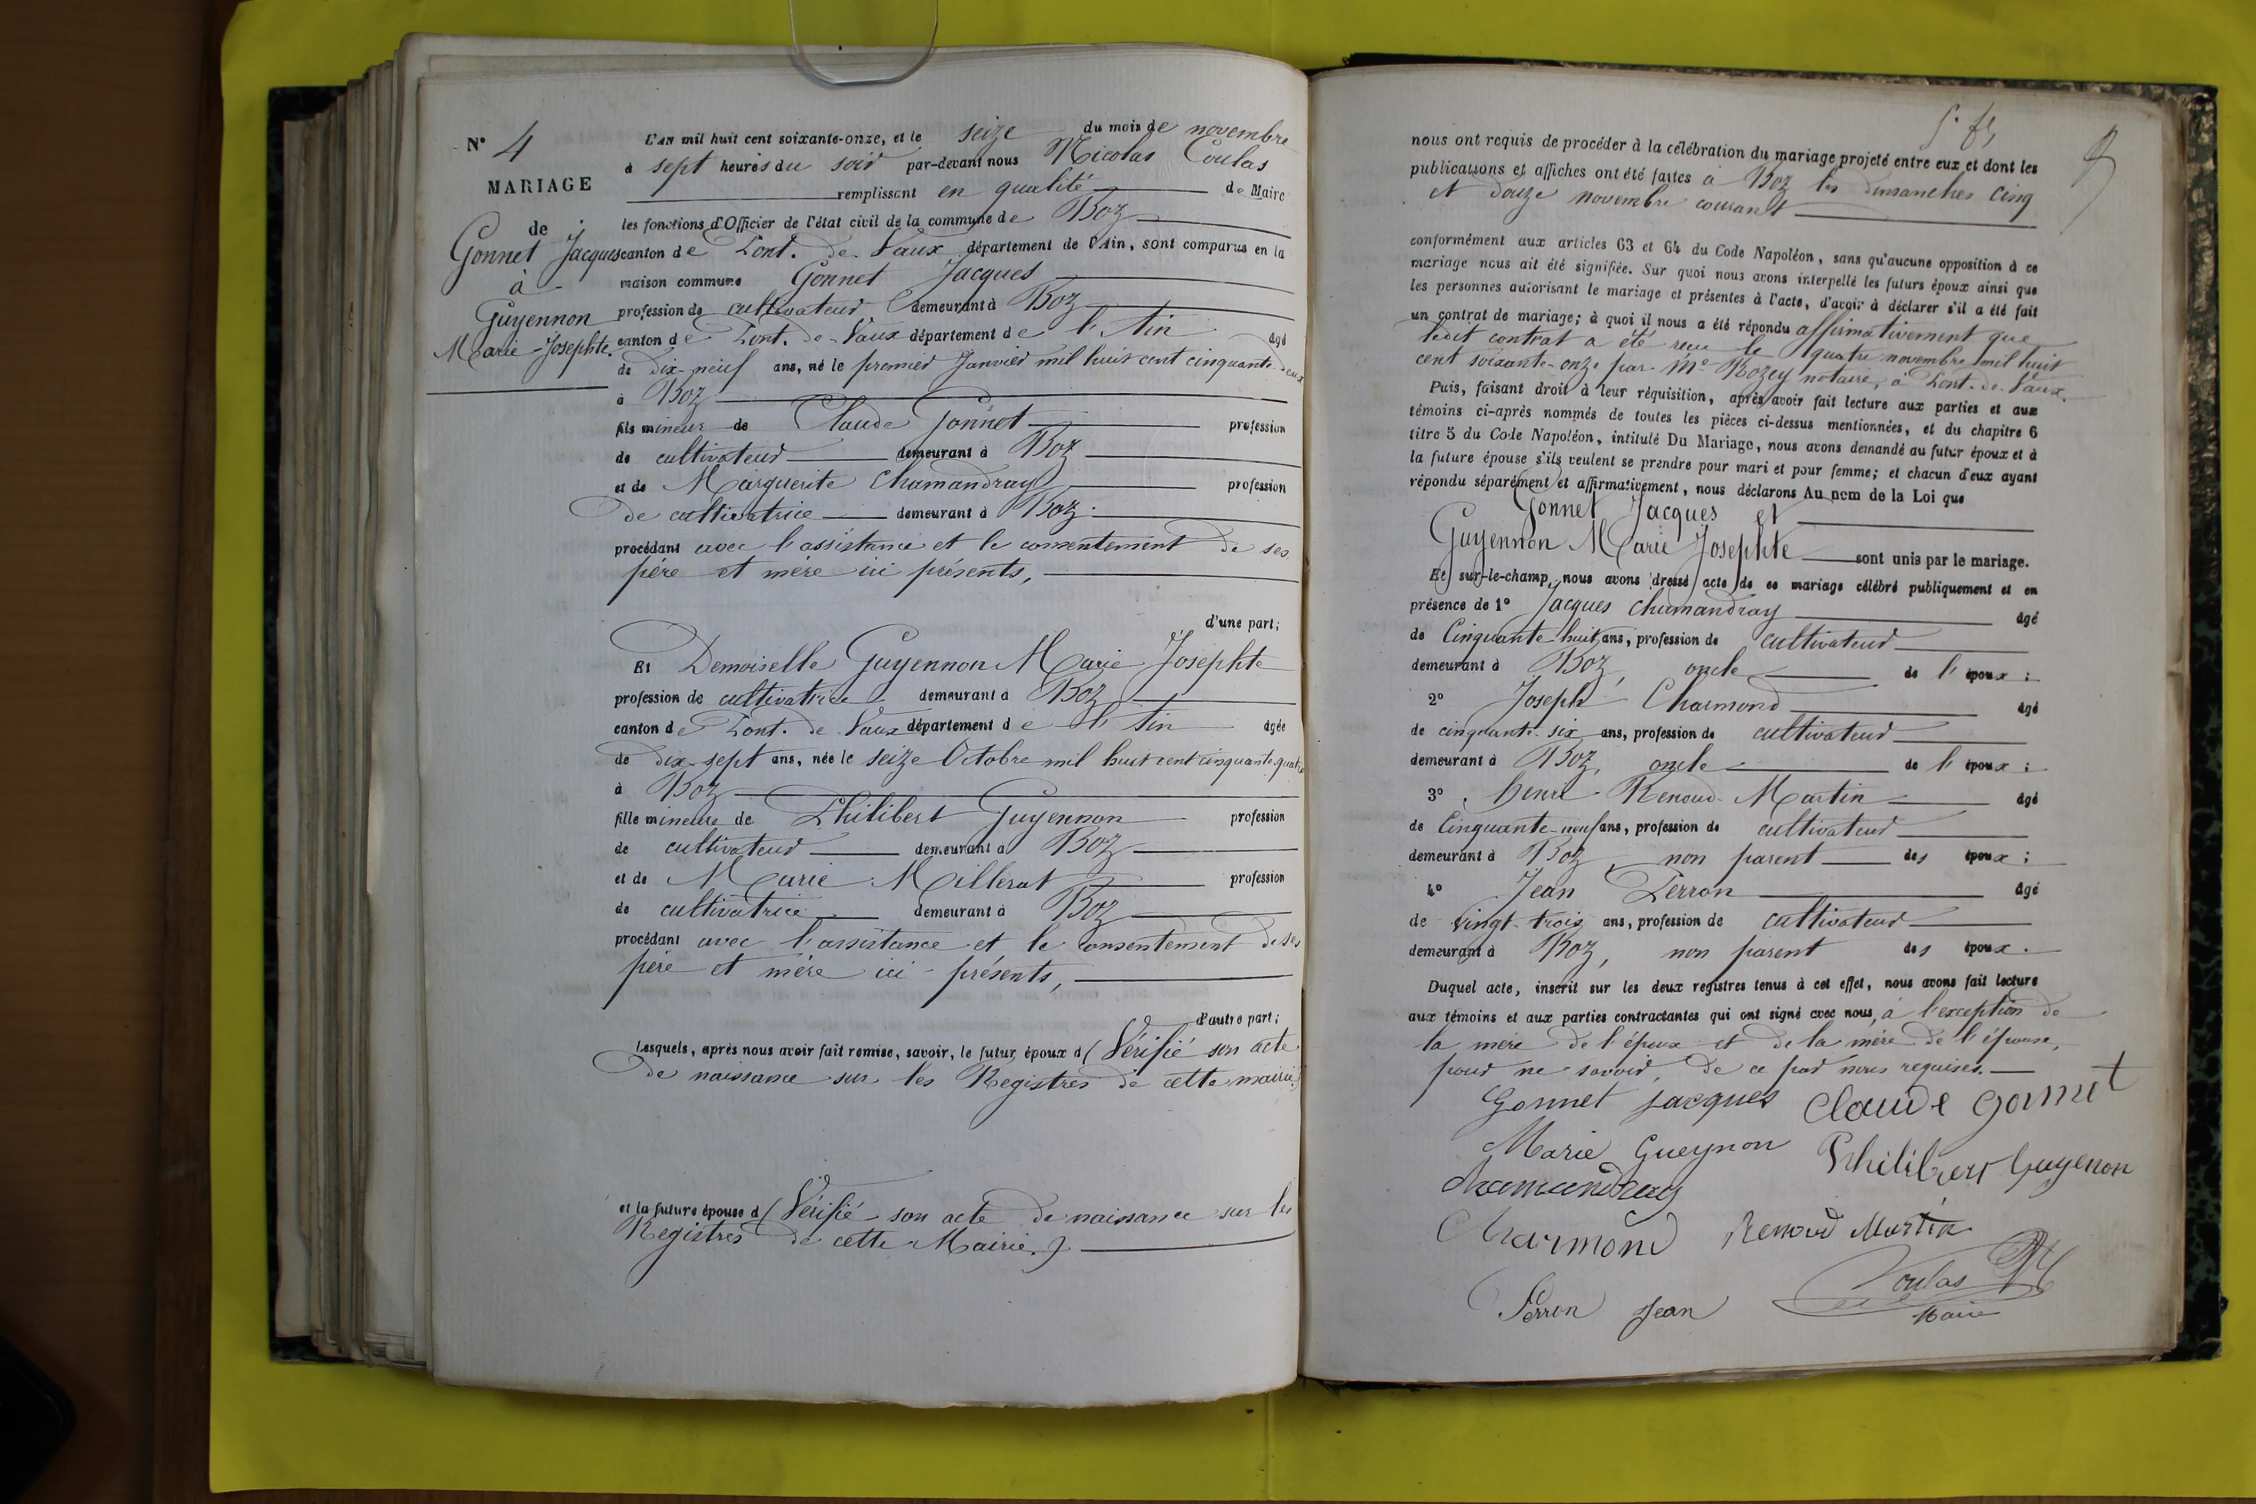 N° 4
MARIAGE
de
Gonnet Jacques
à
Guyennon
Marie-Josephte.
L'AN mil huit cent soixante-onze, et le seize du mois de novembre
à sept heures du soir par-devant nous Nicolas Coulas
remplissant en qualité de Maire
les fonctions d'Officier de l'état civil de la commune de Boz
canton de Pont-de-Vaux département de l'Ain, sont comparus en la
maison commune Gonnet Jacques
profession de cultivateur demeurant à Boz
canton de Pont-de-Vaux département de l'Ain âgé
de dix-neuf ans, né le premier Janvier mil huit cent cinquante-deux
à Boz
fils mineur de Claude Gonnet profession
de cultivateur demeurant à Boz
et de Marguerite Chamandray profession
de cultivatrice demeurant à Boz.
procédant avec l'assistance et le consentement de ses
père et mère ici présents,
d'une part;
Et Demoiselle Guyennon Marie Josephte
profession de cultivatrice demeurant à Boz
canton de Pont-de-Vaux département de l'Ain âgée
de dix-sept ans, née le seize Octobre mil huit cent cinquante-quatre
à Boz
fille mineure de Philibert Guyennon profession
de cultivateur demeurant à Boz
et de Marie Millerat profession
de cultivatrice demeurant à Boz
procédant avec l'assistance et le consentement de ses
père et mère ici présents,
d'autre part;
Lesquels, après nous avoir fait remise, savoir, le futur époux d (Vérifié son acte
de naissance sur les Registres de cette mairie)
et la future épouse d (Vérifié son acte de naissance sur les
Registres de cette Mairie.)
nous ont requis de procéder à la célébration du mariage projeté entre eux et dont les
publications et affiches ont été faites à Boz les dimanches cinq
et douze novembre courant
conformément aux articles 63 et 64 du Code Napoléon, sans qu'aucune opposition à ce
mariage nous ait été signifiée. Sur quoi nous avons interpellé les futurs époux ainsi que
les personnes autorisant le mariage et présentes à l'acte, d'avoir à déclarer s'il a été fait
un contrat de mariage; à quoi il nous a été répondu affirmativement que
ledit contrat a été reçu le quatre novembre mil huit
cent soixante-onze par Me Rozey notaire à Pont-de-Vaux.
Puis, faisant droit à leur réquisition, après avoir fait lecture aux parties et aux
témoins ci-après nommés de toutes les pièces ci-dessus mentionnées, et du chapitre 6
titre 5 du Code Napoléon, intitulé Du Mariage, nous avons demandé au futur époux et à
la future épouse s'ils veulent se prendre pour mari et pour femme; et chacun d'eux ayant
répondu séparément et affirmativement, nous déclarons Au nom de la Loi que
Gonnet Jacques et
Guyennon Marie Josephte sont unis par le mariage.
Et sur-le-champ nous avons dressé acte de ce mariage célébré publiquement et en
présence de 1° Jacques Chamandray âgé
de Cinquante-huit ans, profession de cultivateur
demeurant à Boz, oncle de l'époux;
2° Joseph Charmond âgé
de cinquante-six ans, profession de cultivateur
demeurant à Boz, oncle de l'époux;
3° Henri Renoud-Martin âgé
de Cinquante-neuf ans, profession de cultivateur
demeurant à Boz, non parent des époux;
4° Jean Perron âgé
de vingt-trois ans, profession de cultivateur
demeurant à Boz, non parent des époux.
Duquel acte, inscrit sur les deux registres tenus à cet effet, nous avons fait lecture
aux témoins et aux parties contractantes qui ont signé avec nous, à l'exception de
la mère de l'époux et de la mère de l'épouse,
pour ne savoir, de ce par nous requises.
Gonnet Jacques Claude Gonnet
Marie Gueynon Philibert Guyenon
Chamandray
Charmond Renoud Martin
Perron Jean Coulas
Maire